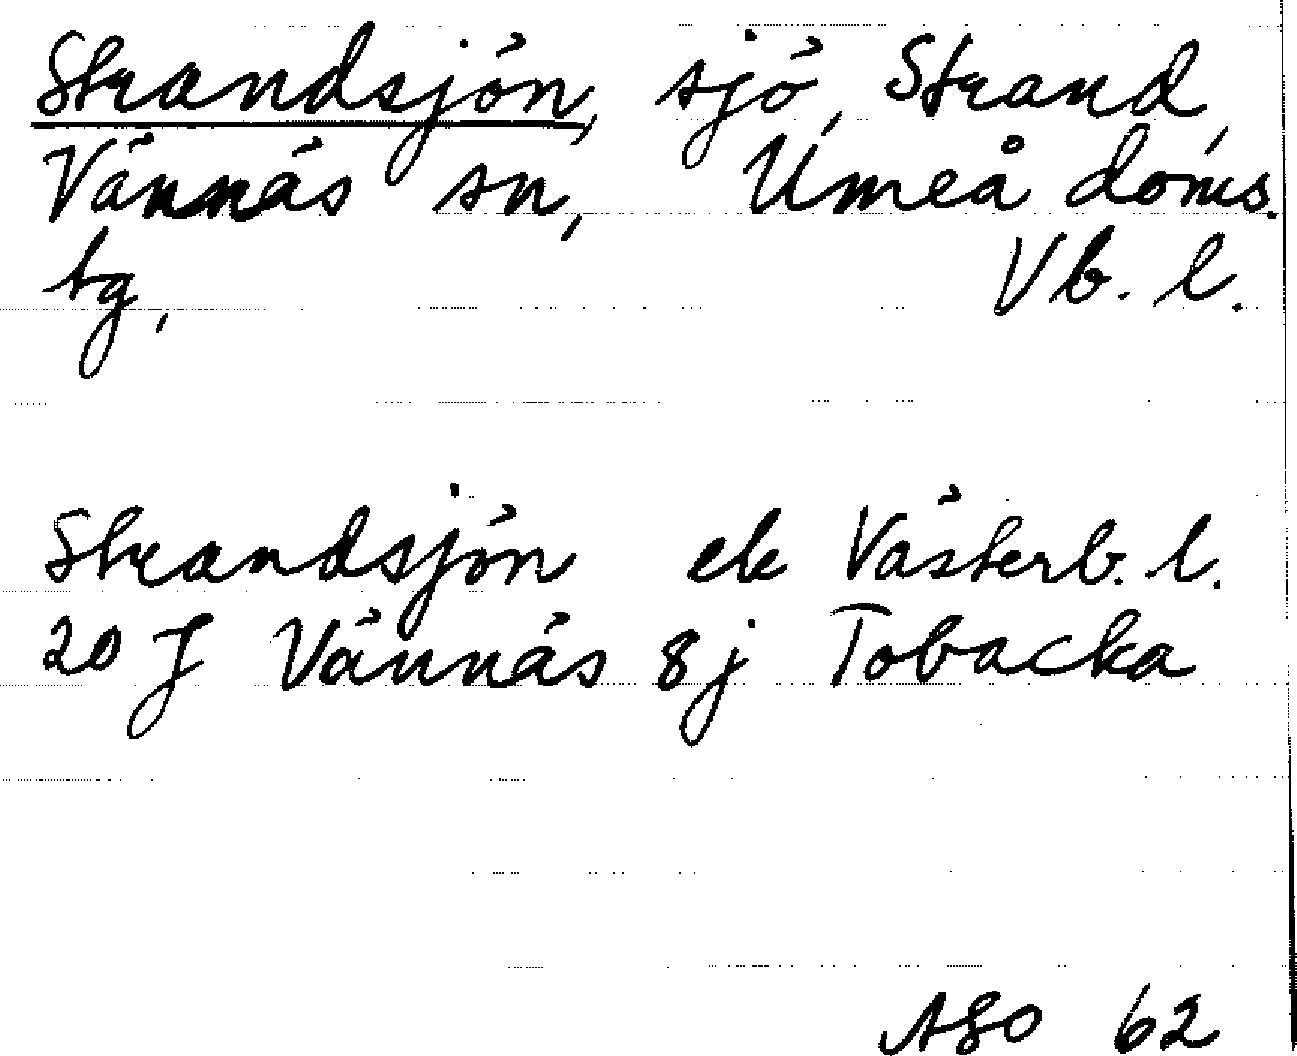 Strandsjön, sjö, Strand,
Vännäs sn, Umeå doms.
tg, Vb. l.
Strandsjön ek Västerb. l.
20 J Vännäs 8j Tobacka
ASO 62